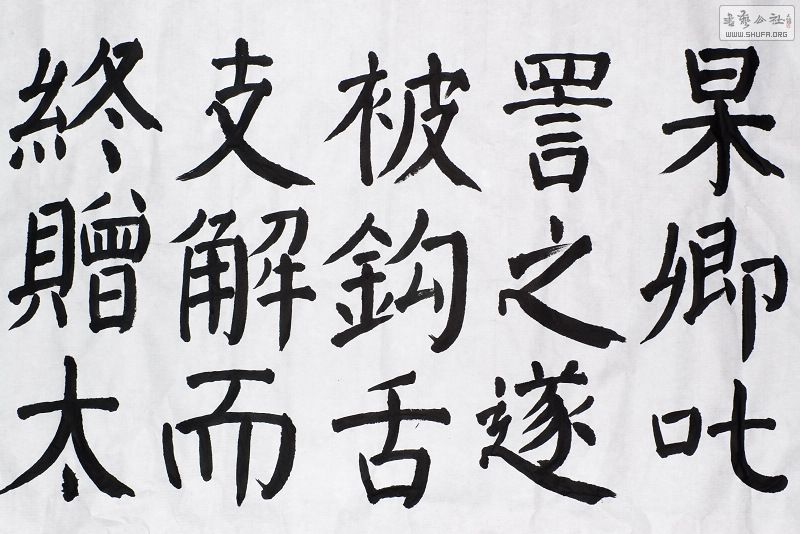 杲卿叱
詈之遂
被鈎舌
支解而
終贈太
書藝公社
WWW.SHUFA.ORG